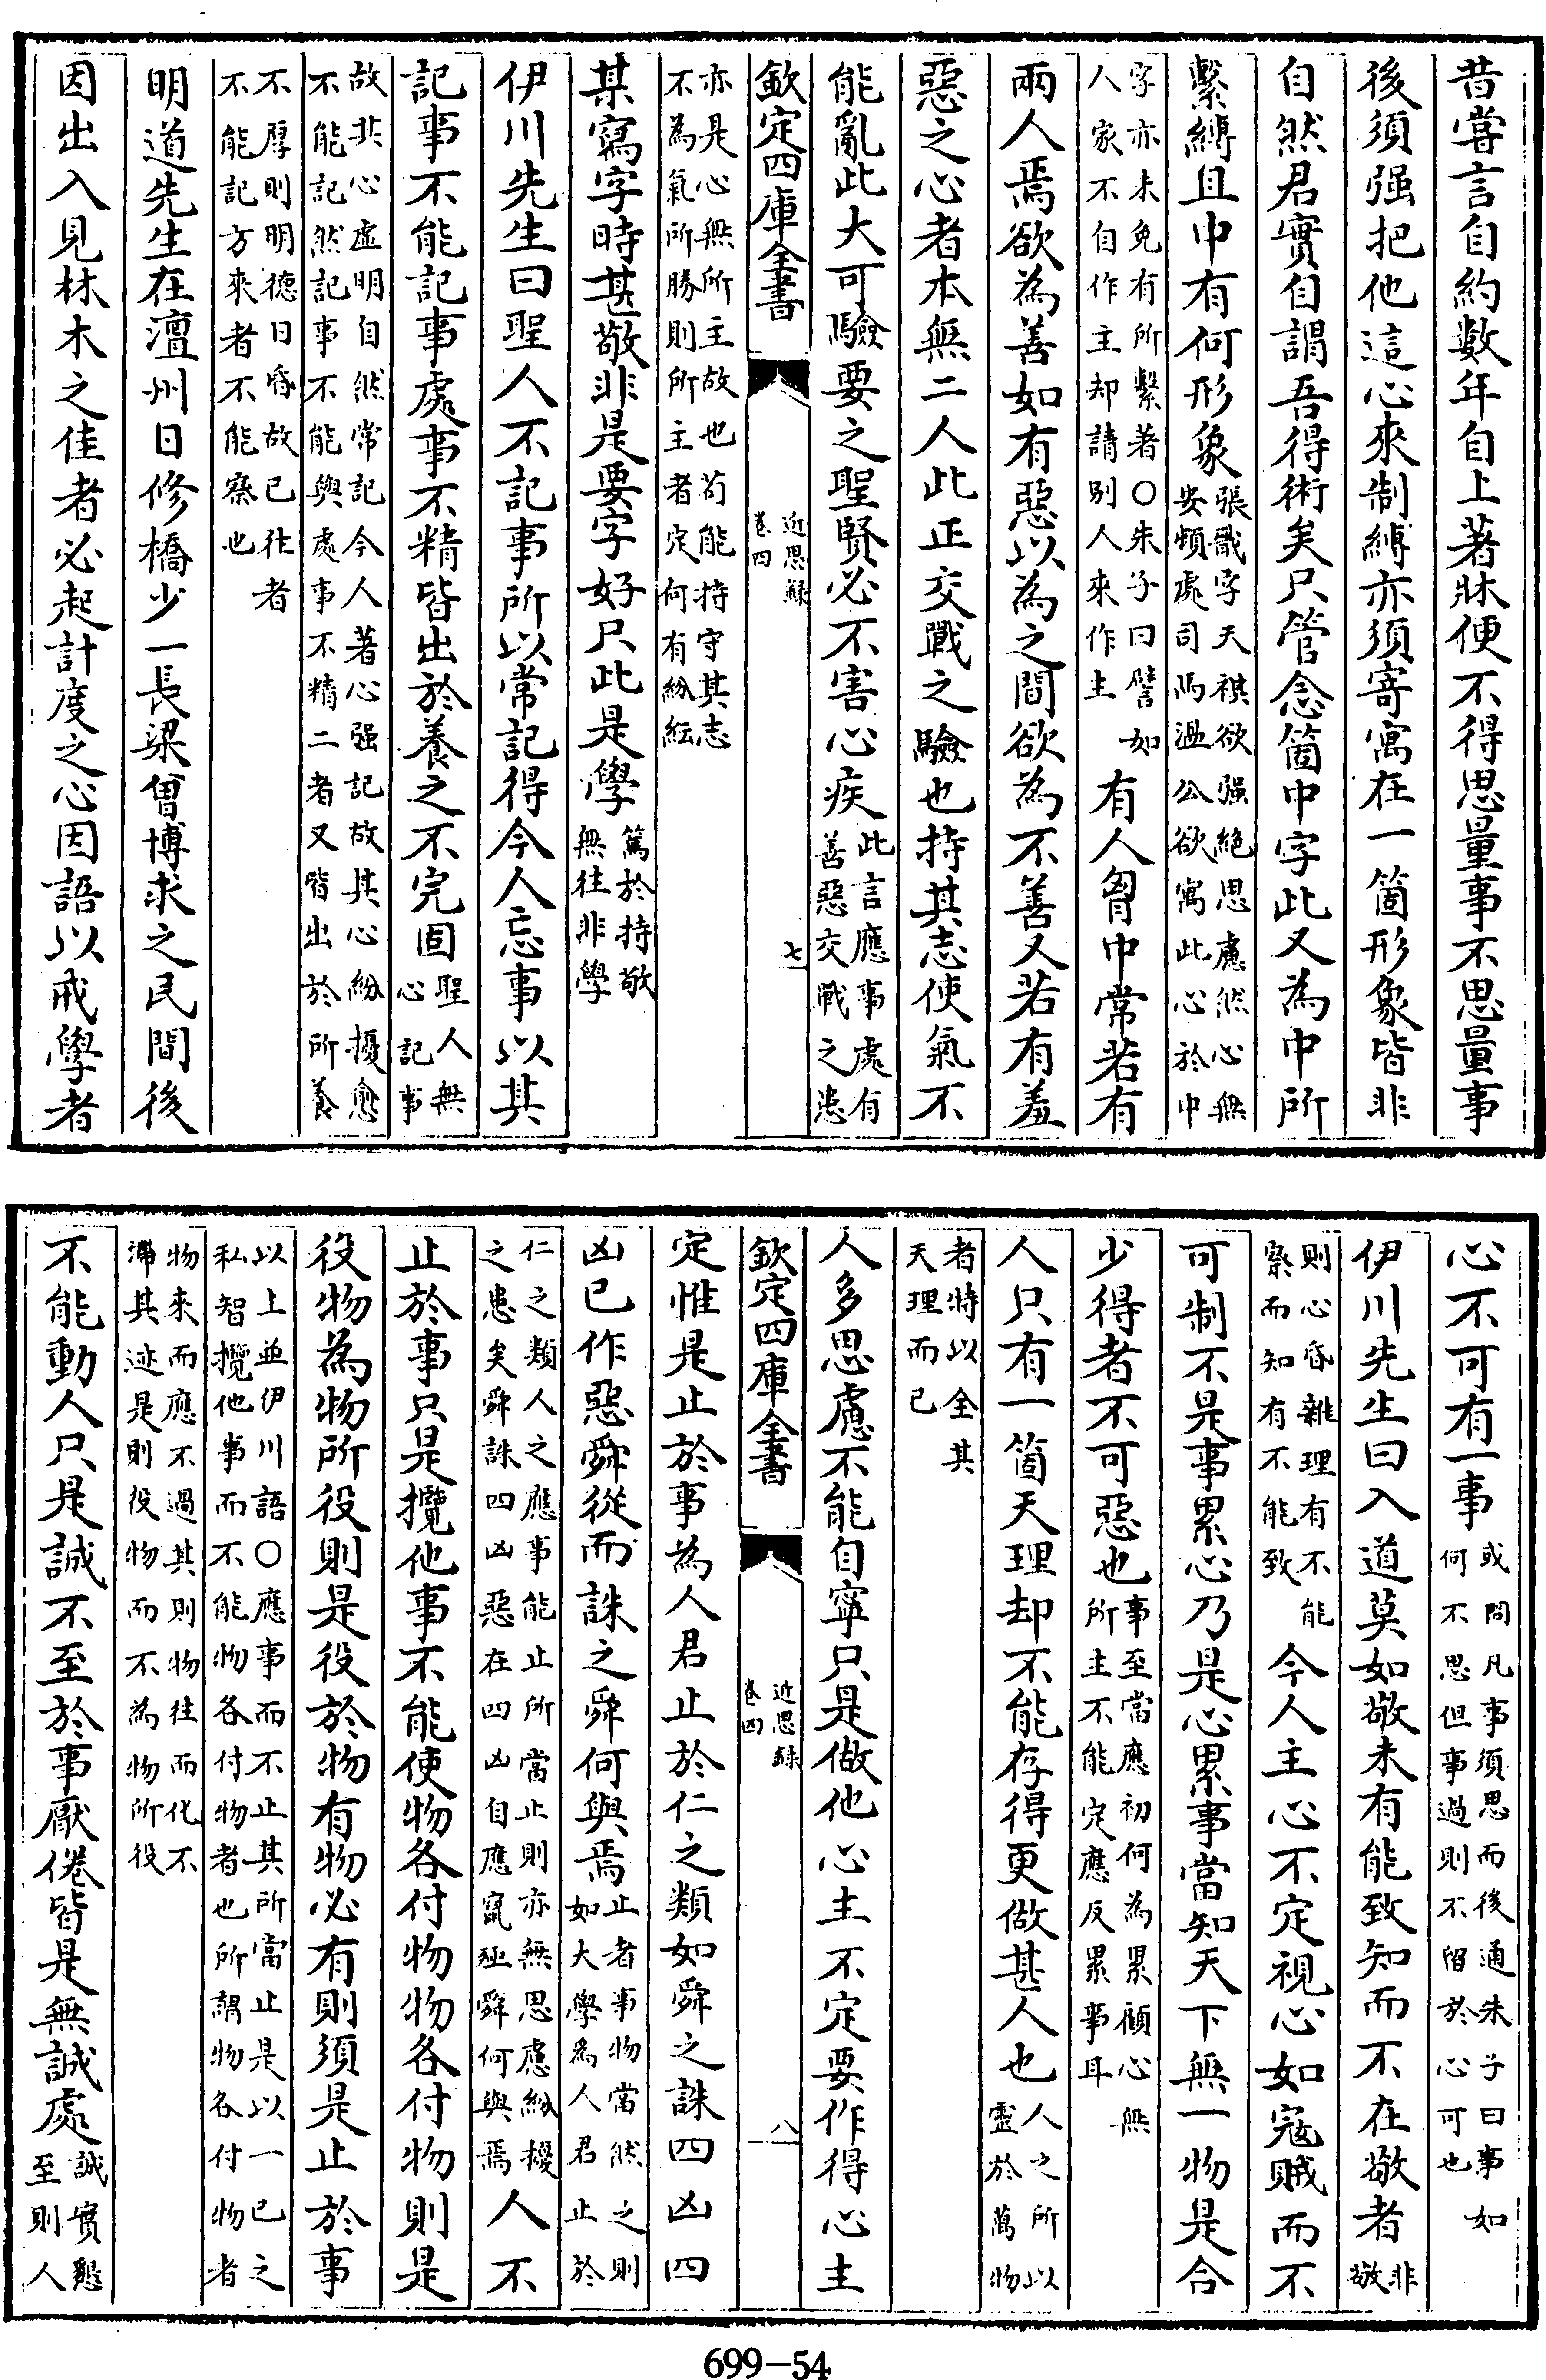 昔嘗言自約數年自上著牀便不得思量事不思量事
後須强把他這心來制縛亦須寄寓在一箇形象皆非
自然君實自謂吾得術矣只管念箇中字此又為中所
繫縛且中有何形象張戩字天祺欲强絶思慮然心無
安頓處司馬溫公欲寓此心於中
字亦未免有所繫著○朱子曰譬如
人家不自作主却請别人來作主有人胷中常若有
兩人焉欲為善如有惡以為之間欲為不善又若有羞
惡之心者本無二人此正交戰之驗也持其志使氣不
能亂此大可驗要之聖賢必不害心疾此言應事處有
善惡交戰之患
欽定四庫全書
近思錄
卷四
七
亦是心無所主故也茍能持守其志
不為氣所勝則所主者定何有紛紜
某寫字時甚敬非是要字好只此是學篤於持敬
無往非學
伊川先生曰聖人不記事所以常記得今人忘事以其
記事不能記事處事不精皆出於養之不完固聖人無
心記事
故其心虛明自然常記今人著心强記故其心紛擾愈
不能記然記事不能與處事不精二者又皆出於所養
不厚則明德日昏故已往者
不能記方來者不能察也
明道先生在澶州日修橋少一長梁曾博求之民間後
因出入見林木之佳者必起計度之心因語以戒學者
心不可有一事或問凡事須思而後通朱子曰事如
何不思但事過則不留於心可也
伊川先生曰入道莫如敬未有能致知而不在敬者非
敬
則心昏雜理有不能
察而知有不能致今人主心不定視心如寇賊而不
可制不是事累心乃是心累事當知天下無一物是合
少得者不可惡也事至當應初何為累顧心無
所主不能定應反累事耳
人只有一箇天理却不能存得更做甚人也人之所以
靈於萬物
者特以全其
天理而已
人多思慮不能自寧只是做他心主不定要作得心主
欽定四庫全書
近思錄
卷四
八
定惟是止於事為人君止於仁之類如舜之誅四凶四
凶已作惡舜從而誅之舜何與焉止者事物當然之則
如大學為人君止於
仁之類人之應事能止所當止則亦無思慮紛擾
之患矣舜誅四凶惡在四凶自應竄殛舜何與焉人不
止於事只是攬他事不能使物各付物物各付物則是
役物為物所役則是役於物有物必有則須是止於事
以上並伊川語○應事而不止其所當止是以一己之
私智攬他事而不能物各付物者也所謂物各付物者
物來而應不過其則物往而化不
滯其迹是則役物而不為物所役
不能動人只是誠不至於事厭倦皆是無誠處誠實懇
至則人
699-54